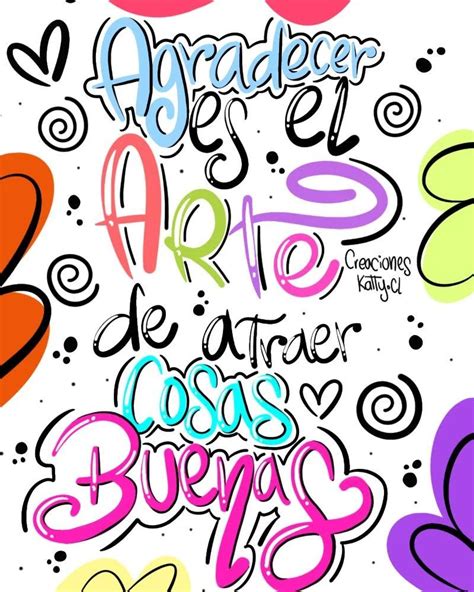 Agradecer
es el
ARTE
Creaciones
Katty.cl
de atraer
Cosas
Buenas